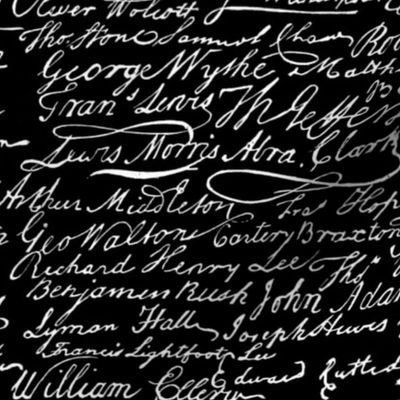 Oliver Wolcott
Tho. Stone Samuel Chase Ro
George Wythe Matth
Fran's Lewis Th Jeffer
Lewis Morris Abra. Clark
Arthur Middleton Fras Hop
Geo Walton Carter Braxton
Richard Henry Lee Thos
Benjamin Rush John Adam
Lyman Hall Joseph Hewes
Francis Lightfoot Lee
William Ellery Edward Rutled